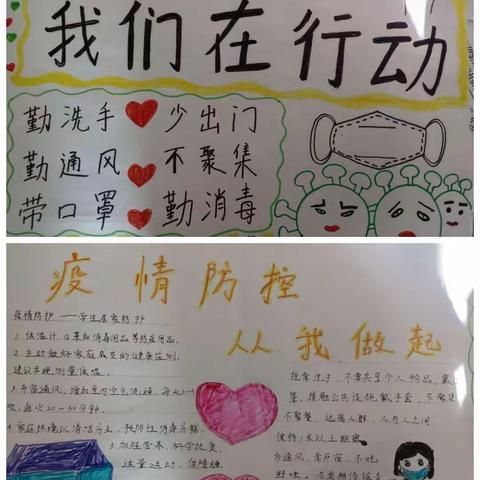 我们在行动
勤洗手 少出门
勤通风 不聚集
带口罩 勤消毒
疫情防控
从我做起
疫情防护——学生居家防护
1.体温计、口罩和消毒用品等防疫用品。
2.主动做好家庭成员的健康监测,
建议早晚测量体温。
3.开窗通风,增加室内空气流通,每天2-3
次,每次20-30分钟。
4.家庭环境以清洁为主,预防性消毒为辅。
5.加强营养,科学饮食,
适量运动,保障睡
经常洗手,不要共享个人物品,戴口
罩,接触公共设施戴手套,不聚集
不聚餐,远离人群,人与人之间
保持1米以上距离
多通风,常开窗,不吃
野味,不要相信谣言